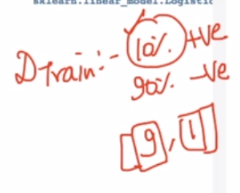 sklearn.linear_model.Logistic
DTrain:- 10% +ve
90% -ve
9, 1